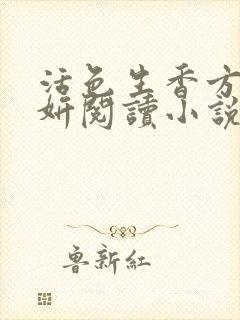 活色生香方
妍閱讀小說
魯新紅